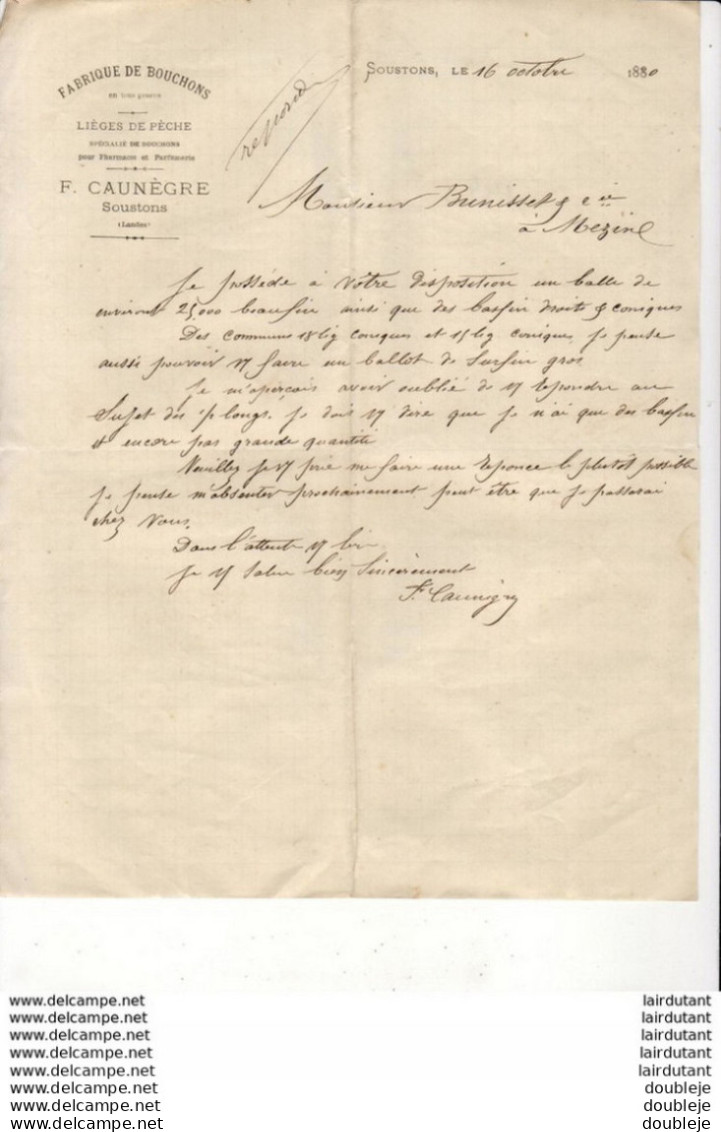 FABRIQUE DE BOUCHONS
en tous genres
LIÈGES DE PÊCHE
SPÉCIALITÉ DE BOUCHONS
pour Pharmacie et Parfumerie
F. CAUNÈGRE
Soustons
(Landes)
SOUSTONS, LE 16 octobre 1880
Monsieur & Cie
à Mezin
Je possède à votre disposition un balle de
environ 25000 beaufin ainsi que des basfin droits & coniques
Des communs 18 lig coniques et 15 lig conique, je pense
aussi pouvoir V faire un ballot de Surfin gros
Je m'aperçois avoir oublié de V repondre au
Sujet des longs. je dois V dire que je n'ai que des basfin
& encore pas grande quantité
Veuillez je V prie me faire une reponce le plutôt possible
je pense m'absenter prochainement peut être que je passerai
chez Vous.
Dans l'attente
Je V Salue bien Sincèrement
F. Caunègre
www.delcampe.net lairdutant
www.delcampe.net lairdutant
www.delcampe.net lairdutant
www.delcampe.net lairdutant
www.delcampe.net lairdutant
www.delcampe.net doubleje
www.delcampe.net doubleje
www.delcampe.net doubleje